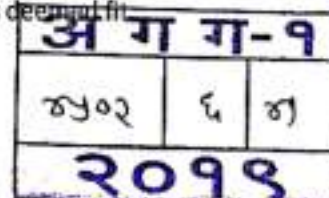 अ ग ग-१
४५०२ ६
२०१९